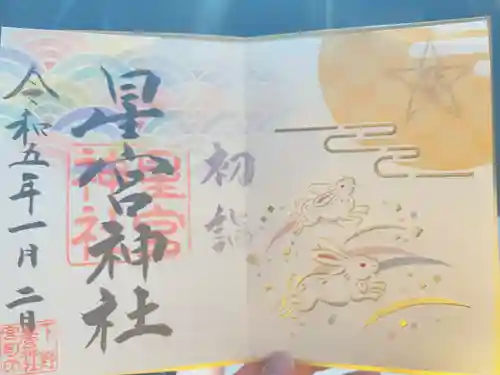 初詣
星宮神社
星宮
神社
令和五年一月二日